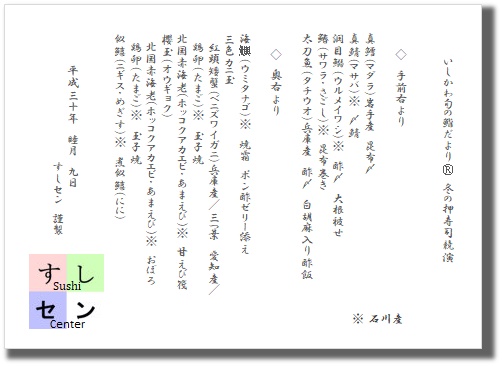 いしかわ旬の鮨だより® 冬の押寿司競演
◇ 手前右より
真鱈(マダラ)岩手産 昆布〆
真鯖(マサバ)※ 〆鯖
潤目鰯(ウルメイワシ)※ 酢〆 大根被せ
鰆(サワラ・さごし)※ 昆布巻き
太刀魚(タチウオ)兵庫産 酢〆 白胡麻入り酢飯
◇ 奥右より
海鱮(ウミタナゴ)※ 焼霜 ポン酢ゼリー添え
三色カニ玉
紅頭矮蟹(ベニズワイガニ)兵庫産/三つ葉 愛知産/
鶏卵(たまご)※ 玉子焼
櫻玉(オウギョク)
北国赤海老(ホッコクアカエビ・あまえび)※ 甘えび筏
鶏卵(たまご)※ 玉子焼
北国赤海老(ホッコクアカエビ・あまえび)※ おぼろ
似鱚(ニギス・めぎす)※ 煮似鱚(にに)
平成三十年 睦月 九日
すしセン 謹製
※ 石川産
すし
Sushi
セン
Center